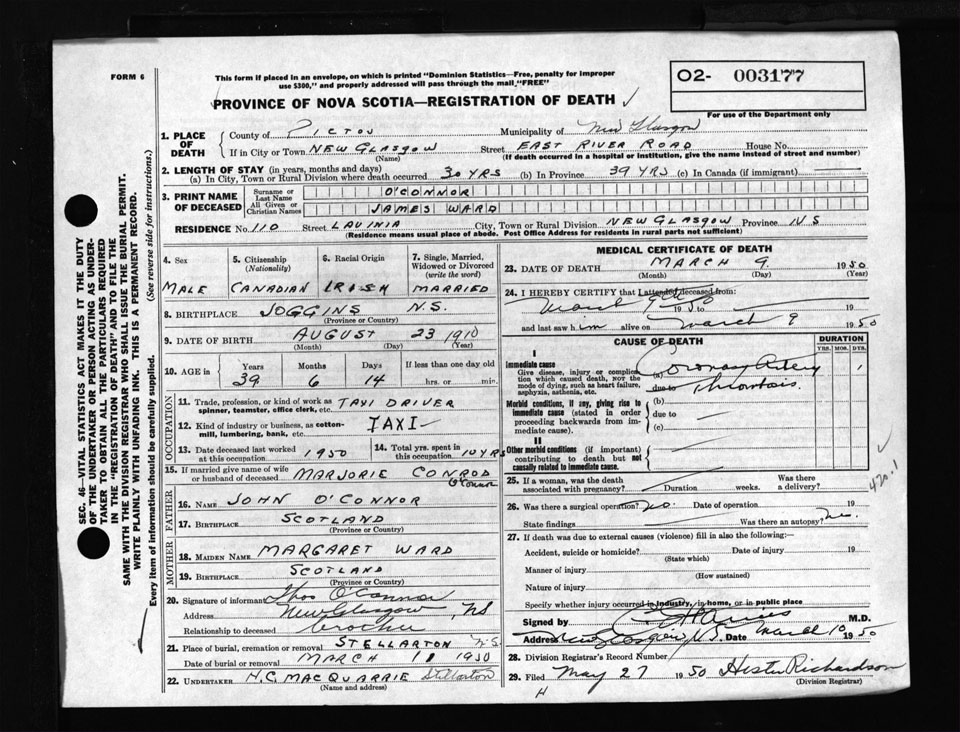 FORM 6
This form if placed in an envelope, on which is printed "Dominion Statistics—Free, penalty for improper
use $300," and properly addressed will pass through the mail "FREE"
O2- 003177
For use of the Department only
PROVINCE OF NOVA SCOTIA—REGISTRATION OF DEATH
1. PLACE OF DEATH
County of PICTOU Municipality of New Glasgow
If in City or Town NEW GLASGOW Street EAST RIVER ROAD House No.
(Name) (If death occurred in a hospital or institution, give the name instead of street and number)
2. LENGTH OF STAY (in years, months and days)
(a) In City, Town or Rural Division where death occurred 30 YRS (b) In Province 39 YRS (c) In Canada (if immigrant)
3. PRINT NAME OF DECEASED
Surname or Last Name O'CONNOR
All Given or Christian Names JAMES WARD
RESIDENCE No. 110 Street LAVINIA City, Town or Rural Division NEW GLASGOW Province N S
(Residence means usual place of abode. Post Office Address for residents in rural parts not sufficient)
4. Sex MALE
5. Citizenship (Nationality) CANADIAN
6. Racial Origin IRISH
7. Single, Married, Widowed or Divorced (write the word) MARRIED
8. BIRTHPLACE JOGGINS N.S.
(Province or Country)
9. DATE OF BIRTH AUGUST 23 1910
(Month) (Day) (Year)
10. AGE in Years Months Days If less than one day old
39 6 14 hrs. or min.
OCCUPATION
11. Trade, profession, or kind of work as spinner, teamster, office clerk, etc. TAXI DRIVER
12. Kind of industry or business, as cotton-mill, lumbering, bank, etc. TAXI
13. Date deceased last worked at this occupation 1950
14. Total yrs. spent in this occupation 10 YRS
15. If married give name of wife or husband of deceased MARJORIE CONROD
O'Connor
FATHER
16. Name JOHN O'CONNOR
17. Birthplace SCOTLAND
(Province or Country)
MOTHER
18. Maiden Name MARGARET WARD
19. Birthplace SCOTLAND
(Province or Country)
20. Signature of informant Thos O'Connor
Address New Glasgow, NS
Relationship to deceased brother
21. Place of burial, cremation or removal STELLARTON N.S.
Date of burial or removal MARCH 11 1950
22. UNDERTAKER H.C. MACQUARRIE Stellarton
(Name and address)
MEDICAL CERTIFICATE OF DEATH
23. DATE OF DEATH MARCH 9. 1950
(Month) (Day) (Year)
24. I HEREBY CERTIFY that I attended deceased from:
19 to 19
and last saw him alive on March 9 1950
CAUSE OF DEATH DURATION
YRS. MOS. DYS.
I
Immediate cause
Give disease, injury or complication which caused death, NOT the mode of dying, such as heart failure, asphyxia, asthenia, etc.
(a) Coronary Artery 1
due to Thrombosis.
Morbid conditions, if any, giving rise to immediate cause (stated in order proceeding backwards from immediate cause).
(b)
due to
(c)
II
Other morbid conditions (if important) contributing to death but not causally related to immediate cause.
420.1
25. If a woman, was the death associated with pregnancy? Duration weeks. Was there a delivery?
26. Was there a surgical operation? no. Date of operation 19
State findings Was there an autopsy? no.
27. If death was due to external causes (violence) fill in also the following:—
Accident, suicide or homicide? Date of injury 19
(State which)
Manner of injury
(How sustained)
Nature of injury
Specify whether injury occurred in industry, in home, or in public place
Signed by M.D.
Address New Glasgow, N.S. Date March 10 1950
28. Division Registrar's Record Number
29. Filed May 27 1950 Hester Richardson
(Division Registrar)
H
SEC. 46—VITAL STATISTICS ACT MAKES IT THE DUTY
OF THE UNDERTAKER OR PERSON ACTING AS UNDER-
TAKER TO OBTAIN ALL THE PARTICULARS REQUIRED
IN THE "REGISTRATION OF DEATH" AND TO FILE THE
SAME WITH THE DIVISION REGISTRAR WHO SHALL ISSUE THE BURIAL PERMIT.
WRITE PLAINLY WITH UNFADING INK. THIS IS A PERMANENT RECORD.
Every item of information should be carefully supplied. (See reverse side for instructions.)